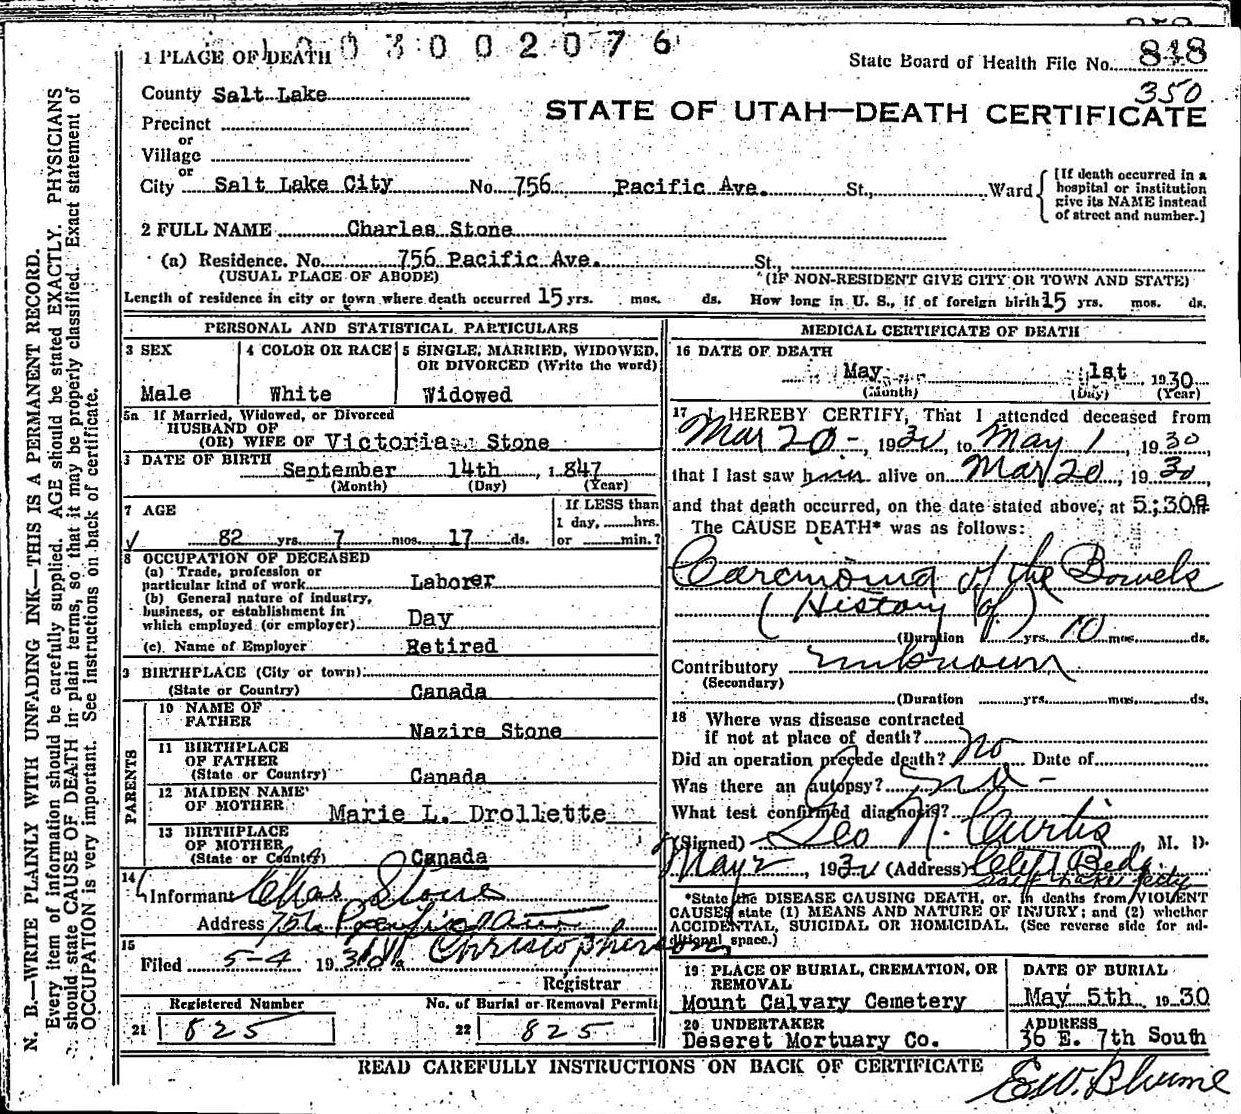 1003002076
1 PLACE OF DEATH
State Board of Health File No. 818
350
County Salt Lake
STATE OF UTAH—DEATH CERTIFICATE
Precinct
or
Village
or
City Salt Lake City No. 756 Pacific Ave. St., Ward
[If death occurred in a
hospital or institution
give its NAME instead
of street and number.]
2 FULL NAME Charles Stone
(a) Residence. No. 756 Pacific Ave. St.,
(USUAL PLACE OF ABODE) (IF NON-RESIDENT GIVE CITY OR TOWN AND STATE)
Length of residence in city or town where death occurred 15 yrs. mos. ds. How long in U. S., if of foreign birth 15 yrs. mos. ds.
N. B.—WRITE PLAINLY WITH UNFADING INK—THIS IS A PERMANENT RECORD.
Every item of information should be carefully supplied. AGE should be stated EXACTLY. PHYSICIANS
should state CAUSE OF DEATH in plain terms, so that it may be properly classified. Exact statement of
OCCUPATION is very important. See instructions on back of certificate.
PERSONAL AND STATISTICAL PARTICULARS
3 SEX
Male
4 COLOR OR RACE
White
5 SINGLE, MARRIED, WIDOWED,
OR DIVORCED (Write the word)
Widowed
5a If Married, Widowed, or Divorced
HUSBAND OF
(OR) WIFE OF Victoria Stone
DATE OF BIRTH September 14th, 1847
(Month) (Day) (Year)
7 AGE
82 yrs. 7 mos. 17 ds.
If LESS than
1 day, hrs.
or min.?
8 OCCUPATION OF DECEASED
(a) Trade, profession or
particular kind of work Laborer
(b) General nature of industry,
business, or establishment in
which employed (or employer) Day
(c) Name of Employer Retired
9 BIRTHPLACE (City or town)
(State or Country) Canada
PARENTS
10 NAME OF
FATHER Nazire Stone
11 BIRTHPLACE
OF FATHER
(State or Country) Canada
12 MAIDEN NAME
OF MOTHER Marie L. Drollette
13 BIRTHPLACE
OF MOTHER
(State or Country) Canada
14
Informant Chas Stone
Address 756 Pacific Ave
15
Filed 5-4 1930 Christopherson
Registrar
Registered Number
21 825
No. of Burial or Removal Permit
22 825
MEDICAL CERTIFICATE OF DEATH
16 DATE OF DEATH
May 1st 1930
(Month) (Day) (Year)
17 I HEREBY CERTIFY, That I attended deceased from
Mar 20 - , 1930, to May 1, 1930,
that I last saw him alive on Mar 20, 1930,
and that death occurred, on the date stated above, at 5:30A
The CAUSE DEATH* was as follows:
Carcinoma of the Bowels
(History of)
(Duration yrs. 10 mos. ds.
Contributory unknown
(Secondary)
(Duration yrs. mos. ds.
18 Where was disease contracted
if not at place of death?
Did an operation precede death? No Date of
Was there an autopsy? no -
What test confirmed diagnosis?
(Signed) Geo N. Curtis M. D.
May 2, 1930 (Address) Clift Bldg
Salt Lake City
*State the DISEASE CAUSING DEATH, or, in deaths from VIOLENT
CAUSES state (1) MEANS AND NATURE OF INJURY; and (2) whether
ACCIDENTAL, SUICIDAL OR HOMICIDAL. (See reverse side for ad-
ditional space.)
19 PLACE OF BURIAL, CREMATION, OR
REMOVAL
Mount Calvary Cemetery
DATE OF BURIAL
May 5th 1930
20 UNDERTAKER
Deseret Mortuary Co.
ADDRESS
36 E. 7th South
READ CAREFULLY INSTRUCTIONS ON BACK OF CERTIFICATE
E.W. Blume